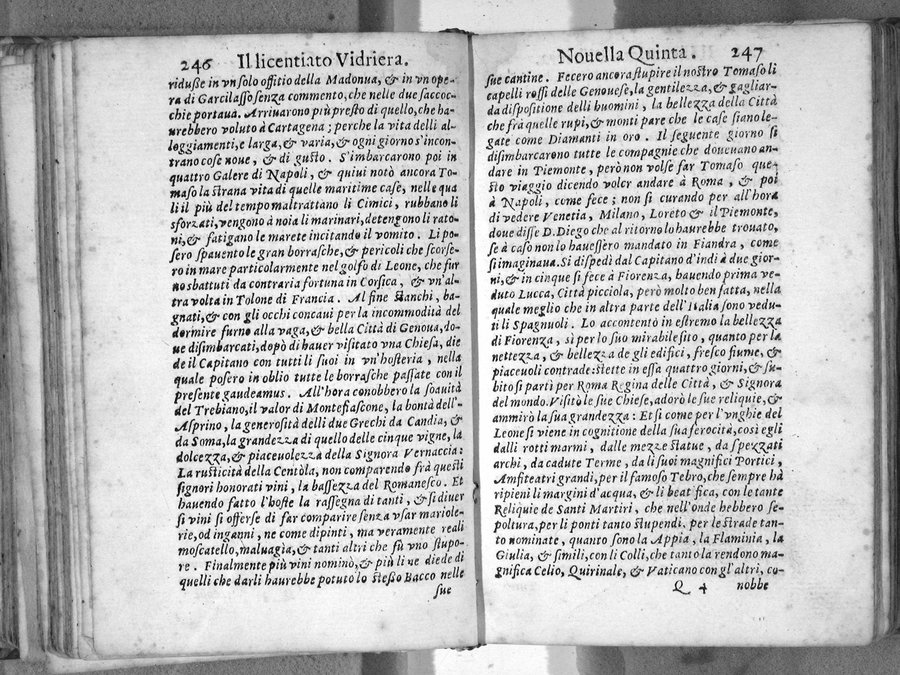 246 Il licentiato Vidriera.
riduße in vn solo offitio della Madonua, & in vn ope-
ra di Garcilasso senza commento, che nelle due saccoc-
chie portaua. Arriuarono più presto di quello, che ha-
urebbero voluto à Cartagena; perche la vita delli al-
loggiamenti, e larga, & varia, & ogni giorno s'incon-
trano cose noue, & di gusto. S'imbarcorono poi in
quattro Galere di Napoli, & quiui notò ancora To-
maso la strana vita di quelle maritime case, nelle qua
li il più del tempo maltrattano li Cimici, rubbano li
sforzati, vengono à noia li marinari, detengono li rato-
ni, & fatigano le marete incitando il vomito. Li po-
sero spauento le gran borrasche, & pericoli che scorse-
ro in mare particolarmente nel golfo di Leone, che fur
no sbattuti da contraria fortuna in Corsica, & vn'al-
tra volta in Tolone di Francia. Al fine stanchi, ba-
gnati, & con gli occhi concaui per la incommodità del
dormire furno alla vaga, & bella Città di Genoua, do-
ue disimbarcati, dopò di hauer visitato vna Chiesa, die
de il Capitano con tutti li suoi in vn'hosteria, nella
quale posero in oblio tutte le borrasche passate con il
presente gaudeamus. All'hora conobbero la soauità
del Trebiano, il valor di Montefiascone, la bontà dell'-
Asprino, la generosità delli due Grechi da Candia, &
da Soma, la grandezza di quello delle cinque vigne, la
dolcezza, & piaceuolezza della Signora Vernaccia:
La rusticità della Centola, non comparendo frà questi
signori honorati vini, la bassezza del Romanesco. Et
hauendo fatto l'hoste la rassegna di tanti, & sì diuer
si vini si offerse di far comparire senza vsar mariole-
rie, od inganni, ne come dipinti, ma veramente reali
moscatello, maluagia, & tanti altri che fù vno stupo-
re. Finalmente più vini nominò, & più li ne diede di
quelli che darli haurebbe potuto lo steßo Bacco nelle
sue
Nouella Quinta. 247
sue cantine. Fecero ancora stupire il nostro Tomaso li
capelli rossi delle Genouese, la gentilezza, & gagliar-
da dispositione delli huomini, la bellezza della Città
che frà quelle rupi, & monti pare che le case siano le-
gate come Diamanti in oro. Il seguente giorno si
disimbarcarono tutte le compagnie che doueuano an-
dare in Piemonte, però non volse far Tomaso que-
sto viaggio dicendo voler andare à Roma, & poi
à Napoli, come fece; non si curando per all'hora
di vedere Venetia, Milano, Loreto & il Piemonte,
doue disse D. Diego che al ritorno lo haurebbe trouato,
se à caso non lo hauessero mandato in Fiandra, come
si imaginaua. Si dispedì dal Capitano d'indi à due gior-
ni, & in cinque si fece à Fiorenza, hauendo prima ve-
duto Lucca, Città picciola, però molto ben fatta, nella
quale meglio che in altra parte dell'Italia sono vedu-
ti li Spagnuoli. Lo accontentò in estremo la bellezza
di Fiorenza, sì per lo suo mirabil sito, quanto per la
nettezza, & bellezza de gli edifici, fresco fiume, &
piaceuoli contrade: stette in essa quattro giorni, & su-
bito si partì per Roma Regina delle Città, & Signora
del mondo. Visitò le sue Chiese, adorò le sue reliquie, &
ammirò la sua grandezza: Et sì come per l'vnghie del
Leone si viene in cognitione della sua ferocità, così egli
dalli rotti marmi, dalle mezze statue, da spezzati
archi, da cadute Terme, da li suoi magnifici Portici,
Amfiteatri grandi, per il famoso Tebro, che sempre hà
ripieni li margini d'acqua, & li beatifica, con le tante
Reliquie de Santi Martiri, che nell'onde hebbero se-
poltura, per li ponti tanto stupendi, per le strade tan-
to nominate, quanto sono la Appia, la Flaminia, la
Giulia, & simili, con li Colli, che tanto la rendono ma-
gnifica Celio, Quirinale, & Vaticano con gl'altri, co-
Q 4 nobbe